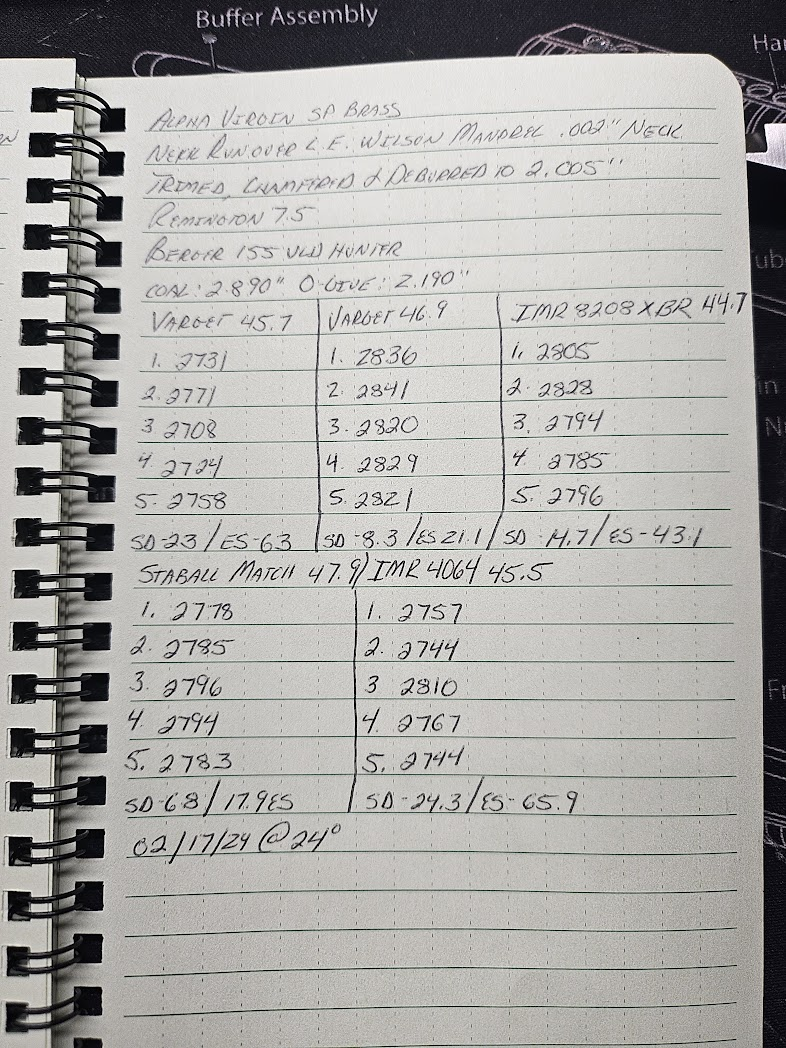 Buffer Assembly
Har
ALPHA VIRGIN SP BRASS
NECK RUN OVER L.E. WILSON MANDREL .002" NECK
TRIMED, CHAMFERED & DEBURRED TO 2.005"
REMINGTON 7.5
BERGER 155 VLD HUNTER
COAL: 2.890" O-GIVE: 2.190"
VARGET 45.7
1. 2731
2. 2771
3 2708
4. 2724
5. 2758
SD-23/ES-63
VARGET 46.9
1. 2836
2. 2841
3. 2820
4. 2829
5. 2821
SD-8.3/ES 21.1
IMR 8208 XBR 44.7
1. 2805
2. 2828
3. 2794
4. 2785
5. 2796
SD-14.7/ES-43.1
STABALL MATCH 47.9
1. 2778
2. 2785
3. 2796
4. 2794
5. 2783
SD-6.8/17.9ES
IMR 4064 45.5
1. 2757
2. 2744
3 2810
4. 2767
5. 2744
SD-24.3/ES-65.9
02/17/24 @ 24°
ub
in
N
Fr